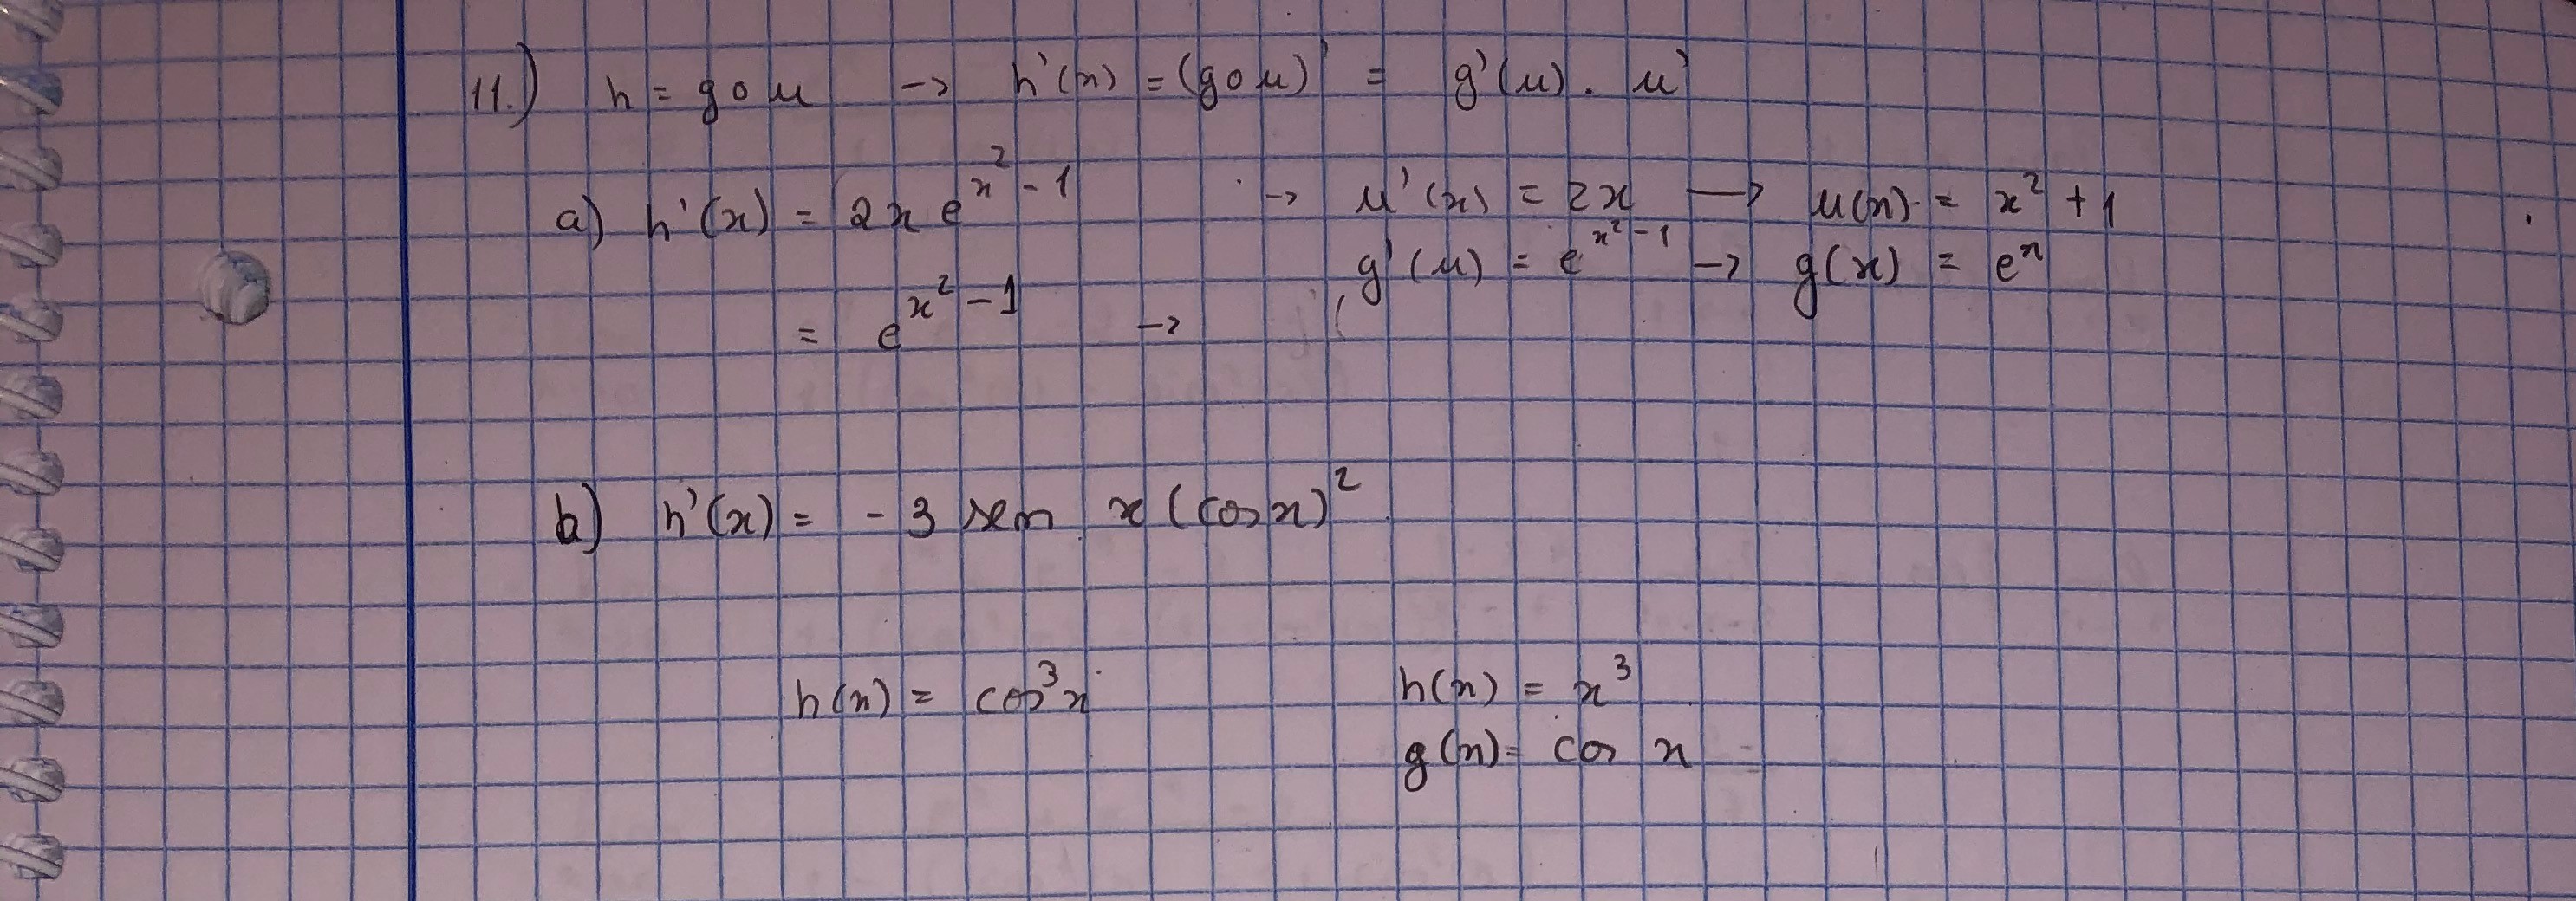 11.) h = g o u -> h'(x) = (g o u)' = g'(u) . u'
a) h'(x) = 2x e^{x^2 - 1} -> u'(x) = 2x -> u(x) = x^2 + 1
g'(u) = e^{x^2 - 1} -> g(x) = e^x
= e^{x^2 - 1} -> (
b) h'(x) = - 3 sen x (cos x)^2
h(x) = cos^3 x h(x) = x^3
g(x) = cos x